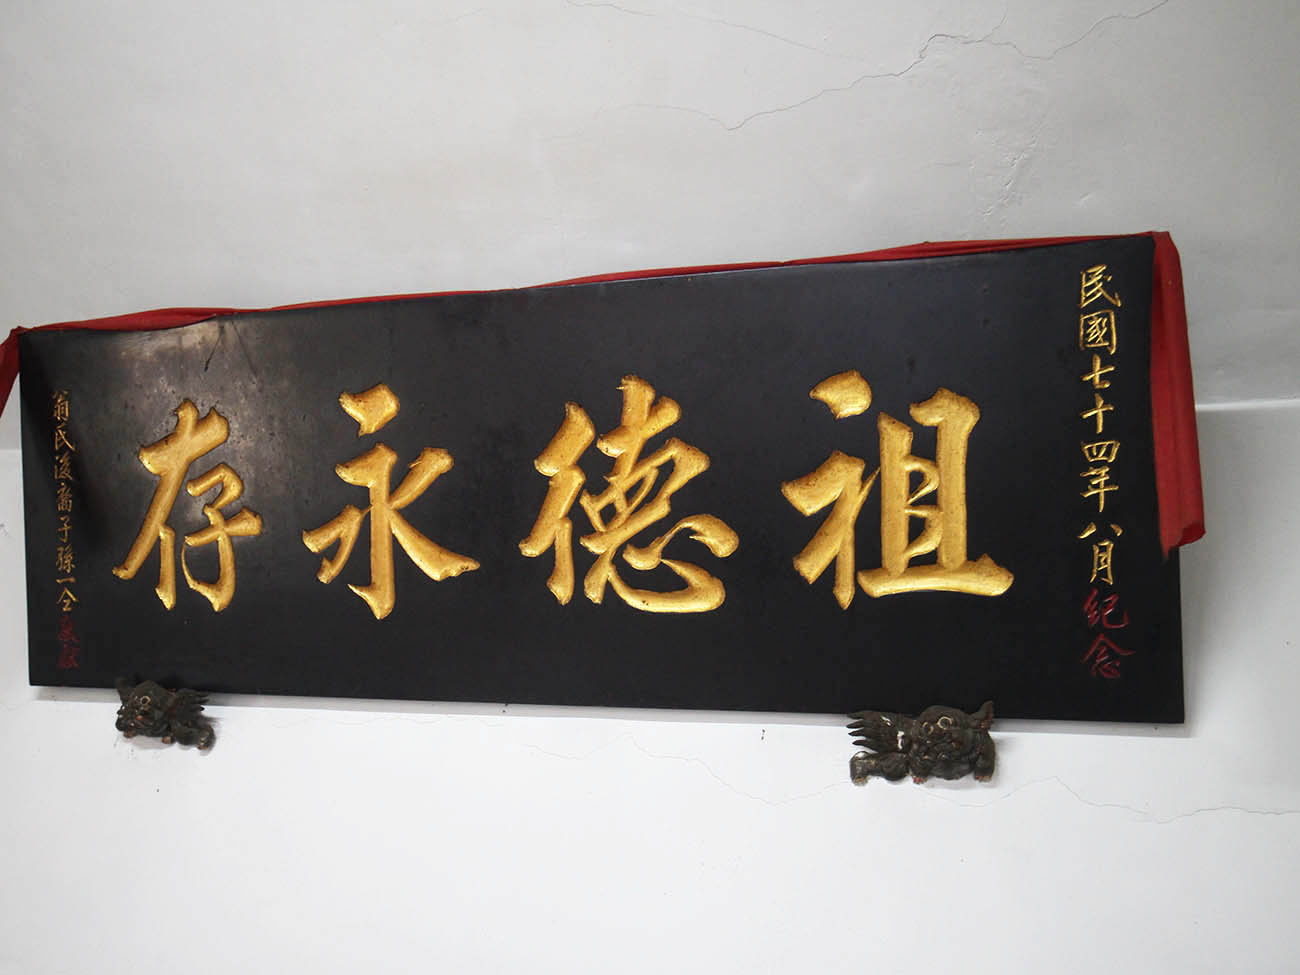 民國七十四年八月紀念
祖德永存
翁氏後裔子孫一仝敬獻